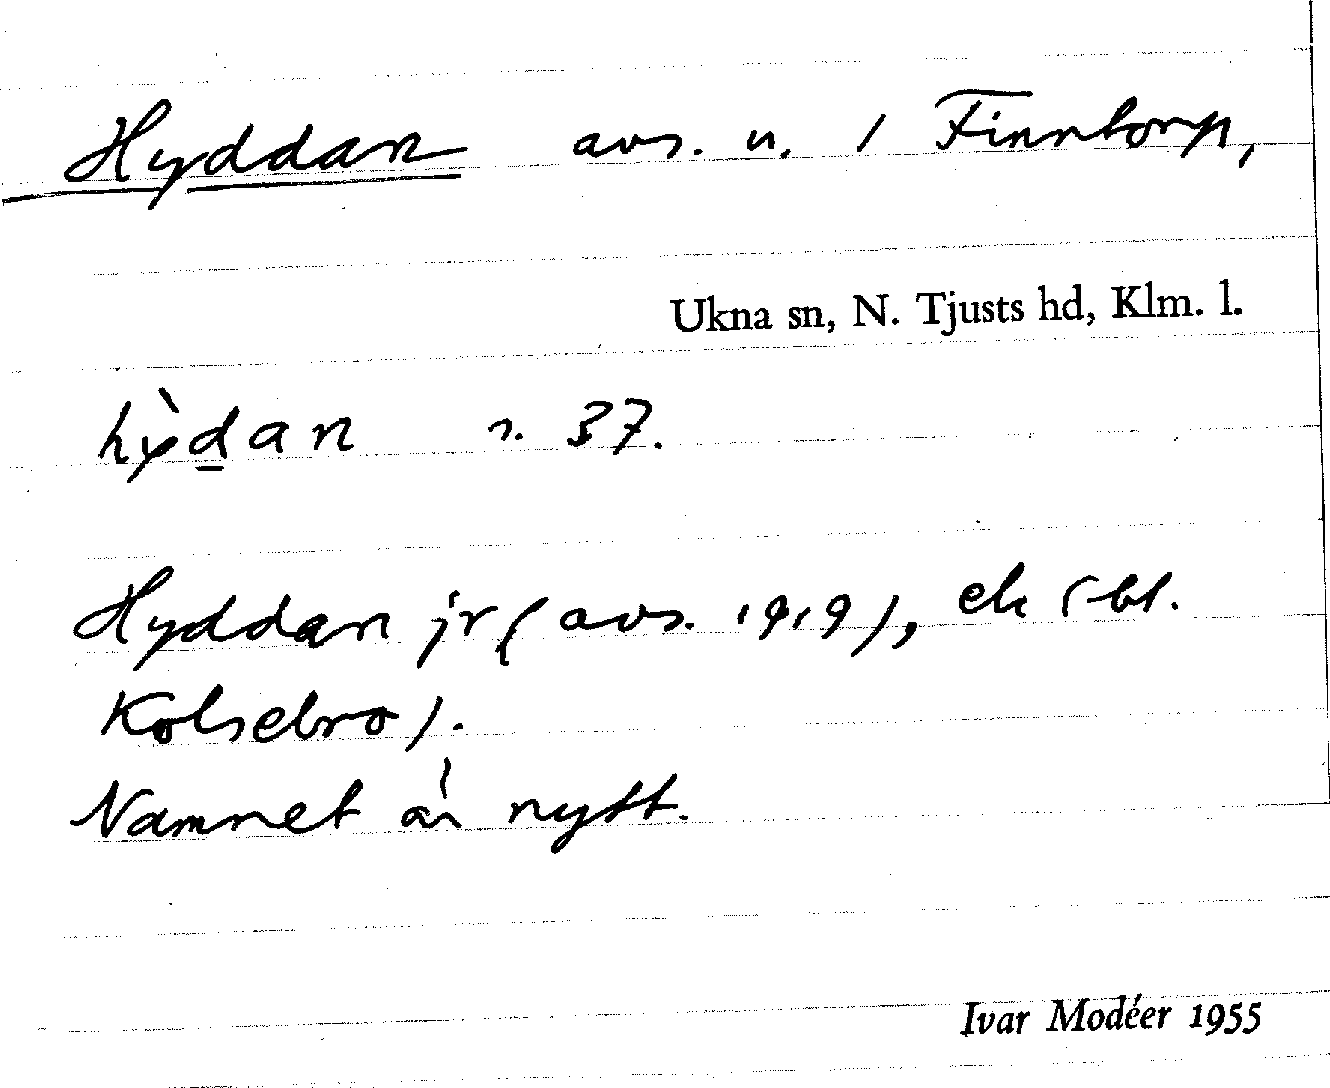 Hyddan avs. u. 1 Finntorp,
Ukna sn, N. Tjusts hd, Klm. l.
hỳdan s. 37.
Hyddan jr (avs. 1919), ek (bl.
Kolsebro).
Namnet är nytt.
Ivar Modéer 1955